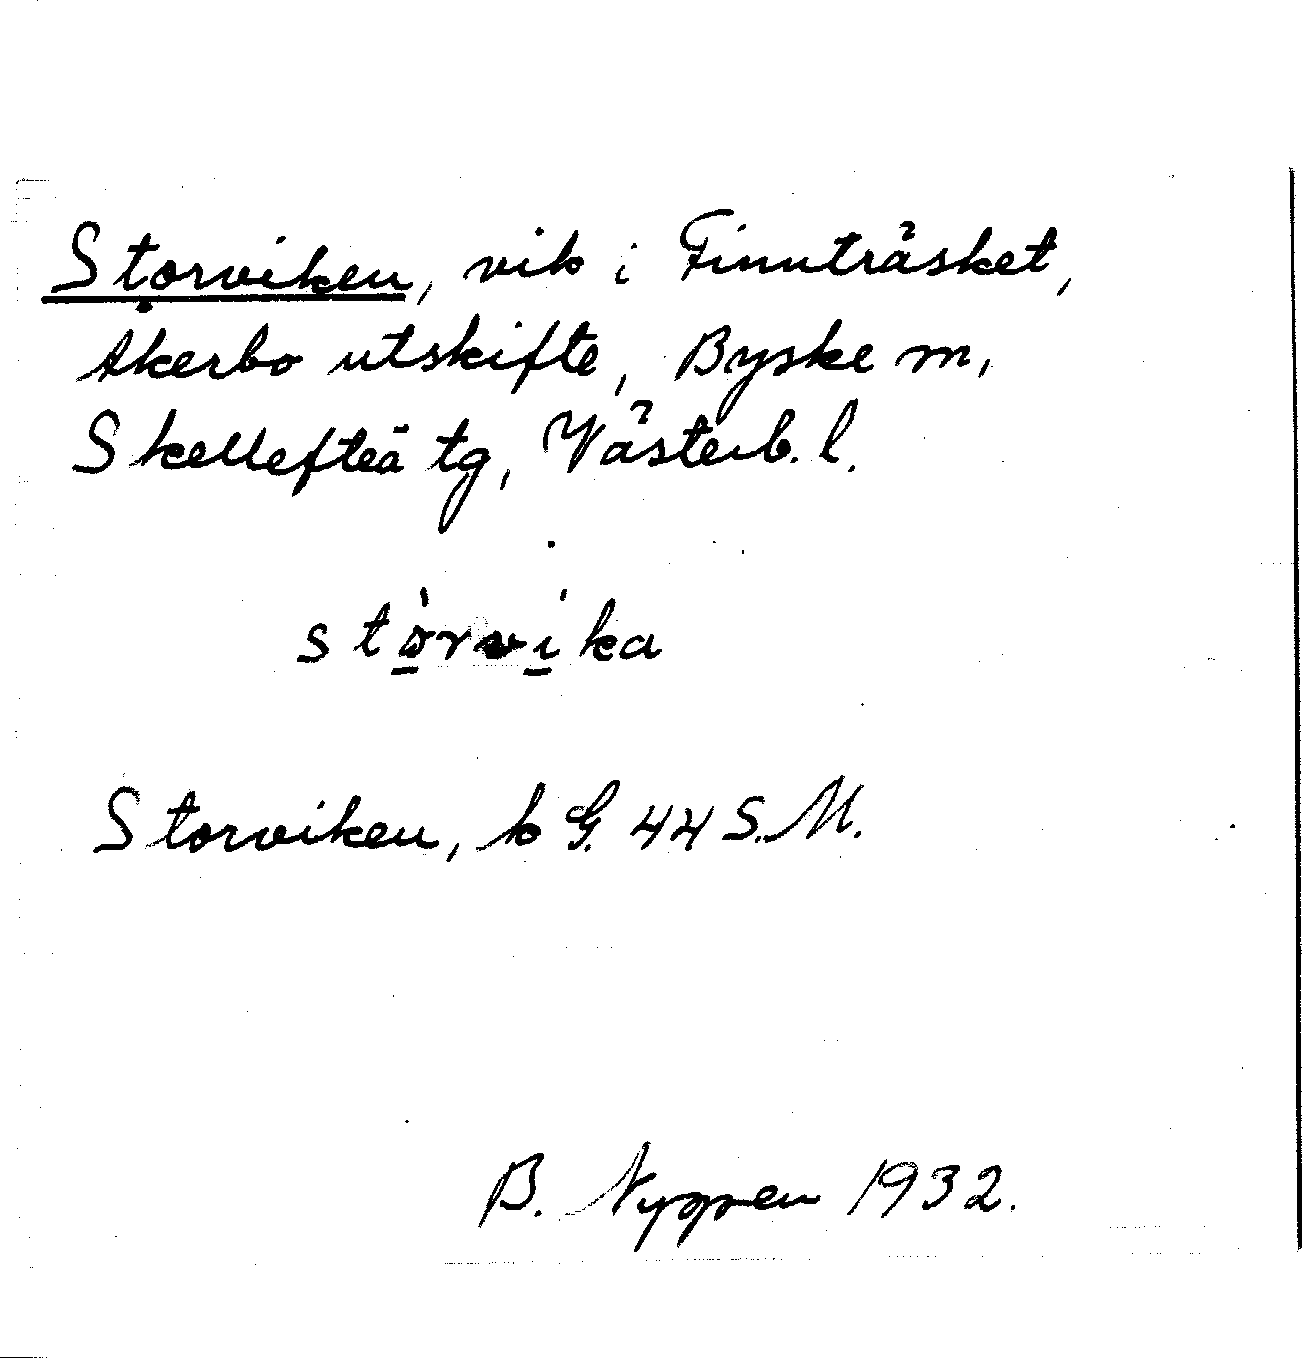 Storviken, vik i Finnträsket,
Åkerbo utskifte, Byske m,
Skellefteå tg, Västerb. l.
stòrvíka
Storviken, k G. 44 S.M.
B. 1932.